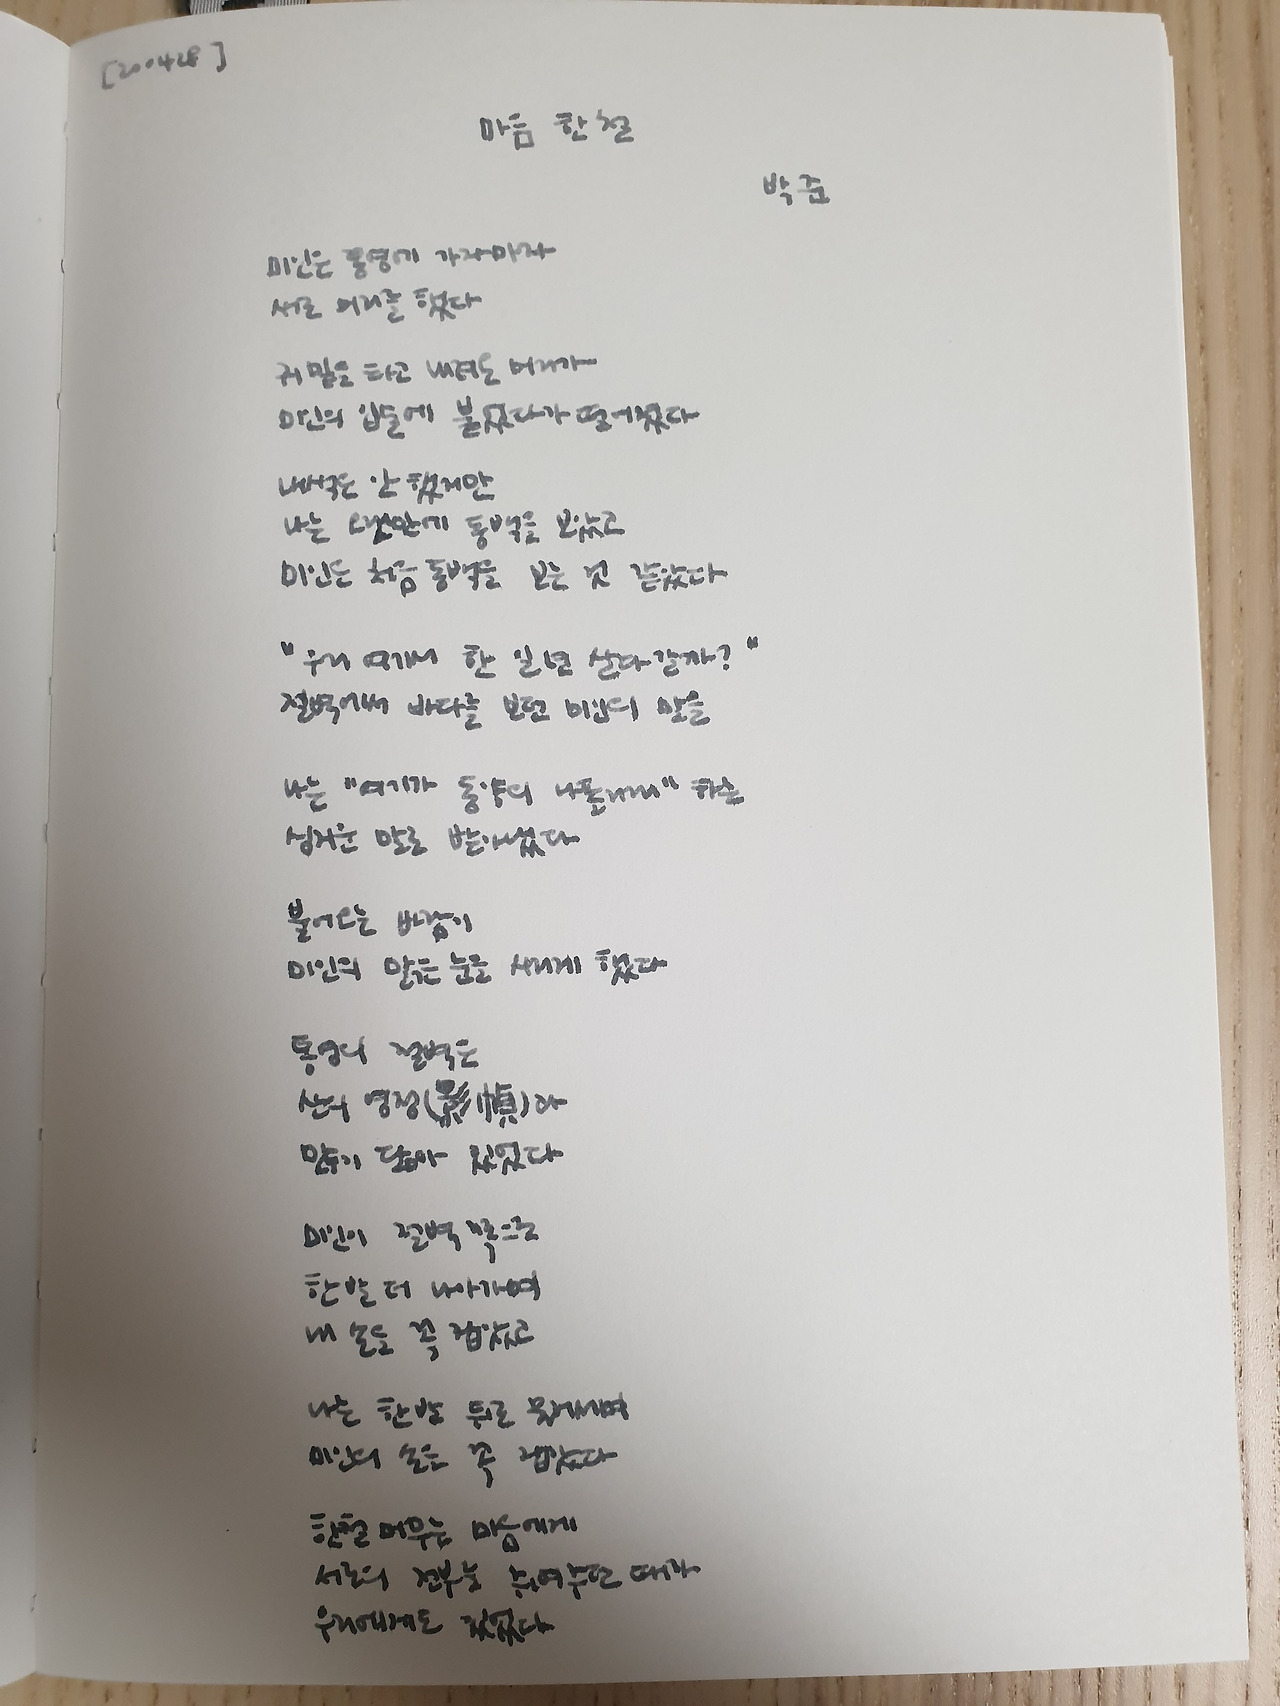 [200428]
마음 한철
박준
미인은 통영에 가자마자
새로 머리를 했다
귀밑을 타고 내려온 머리가
미인의 입술에 붙었다가 떨어졌다
내색은 안 했지만
나는 오랜만에 동백을 보았고
미인은 처음 동백을 보는 것 같았다
"우리 여기서 한 일년 살다갈까?"
절벽에서 바다를 보던 미인의 말을
나는 "여기가 동양의 나폴리래" 하는
싱거운 말로 받아냈다
불어오는 바람이
미인의 맑은 눈을 시리게 했다
통영의 절벽은
산의 영정(影幀)과
많이 닮아 있었다
미인이 절벽 쪽으로
한발 더 나아가며
내 손을 꼭 잡았고
나는 한발 뒤로 물러서며
미인의 손을 꼭 잡았다
한철 머무는 마음에게
서로의 전부를 쥐여주던 때가
우리에게도 있었다